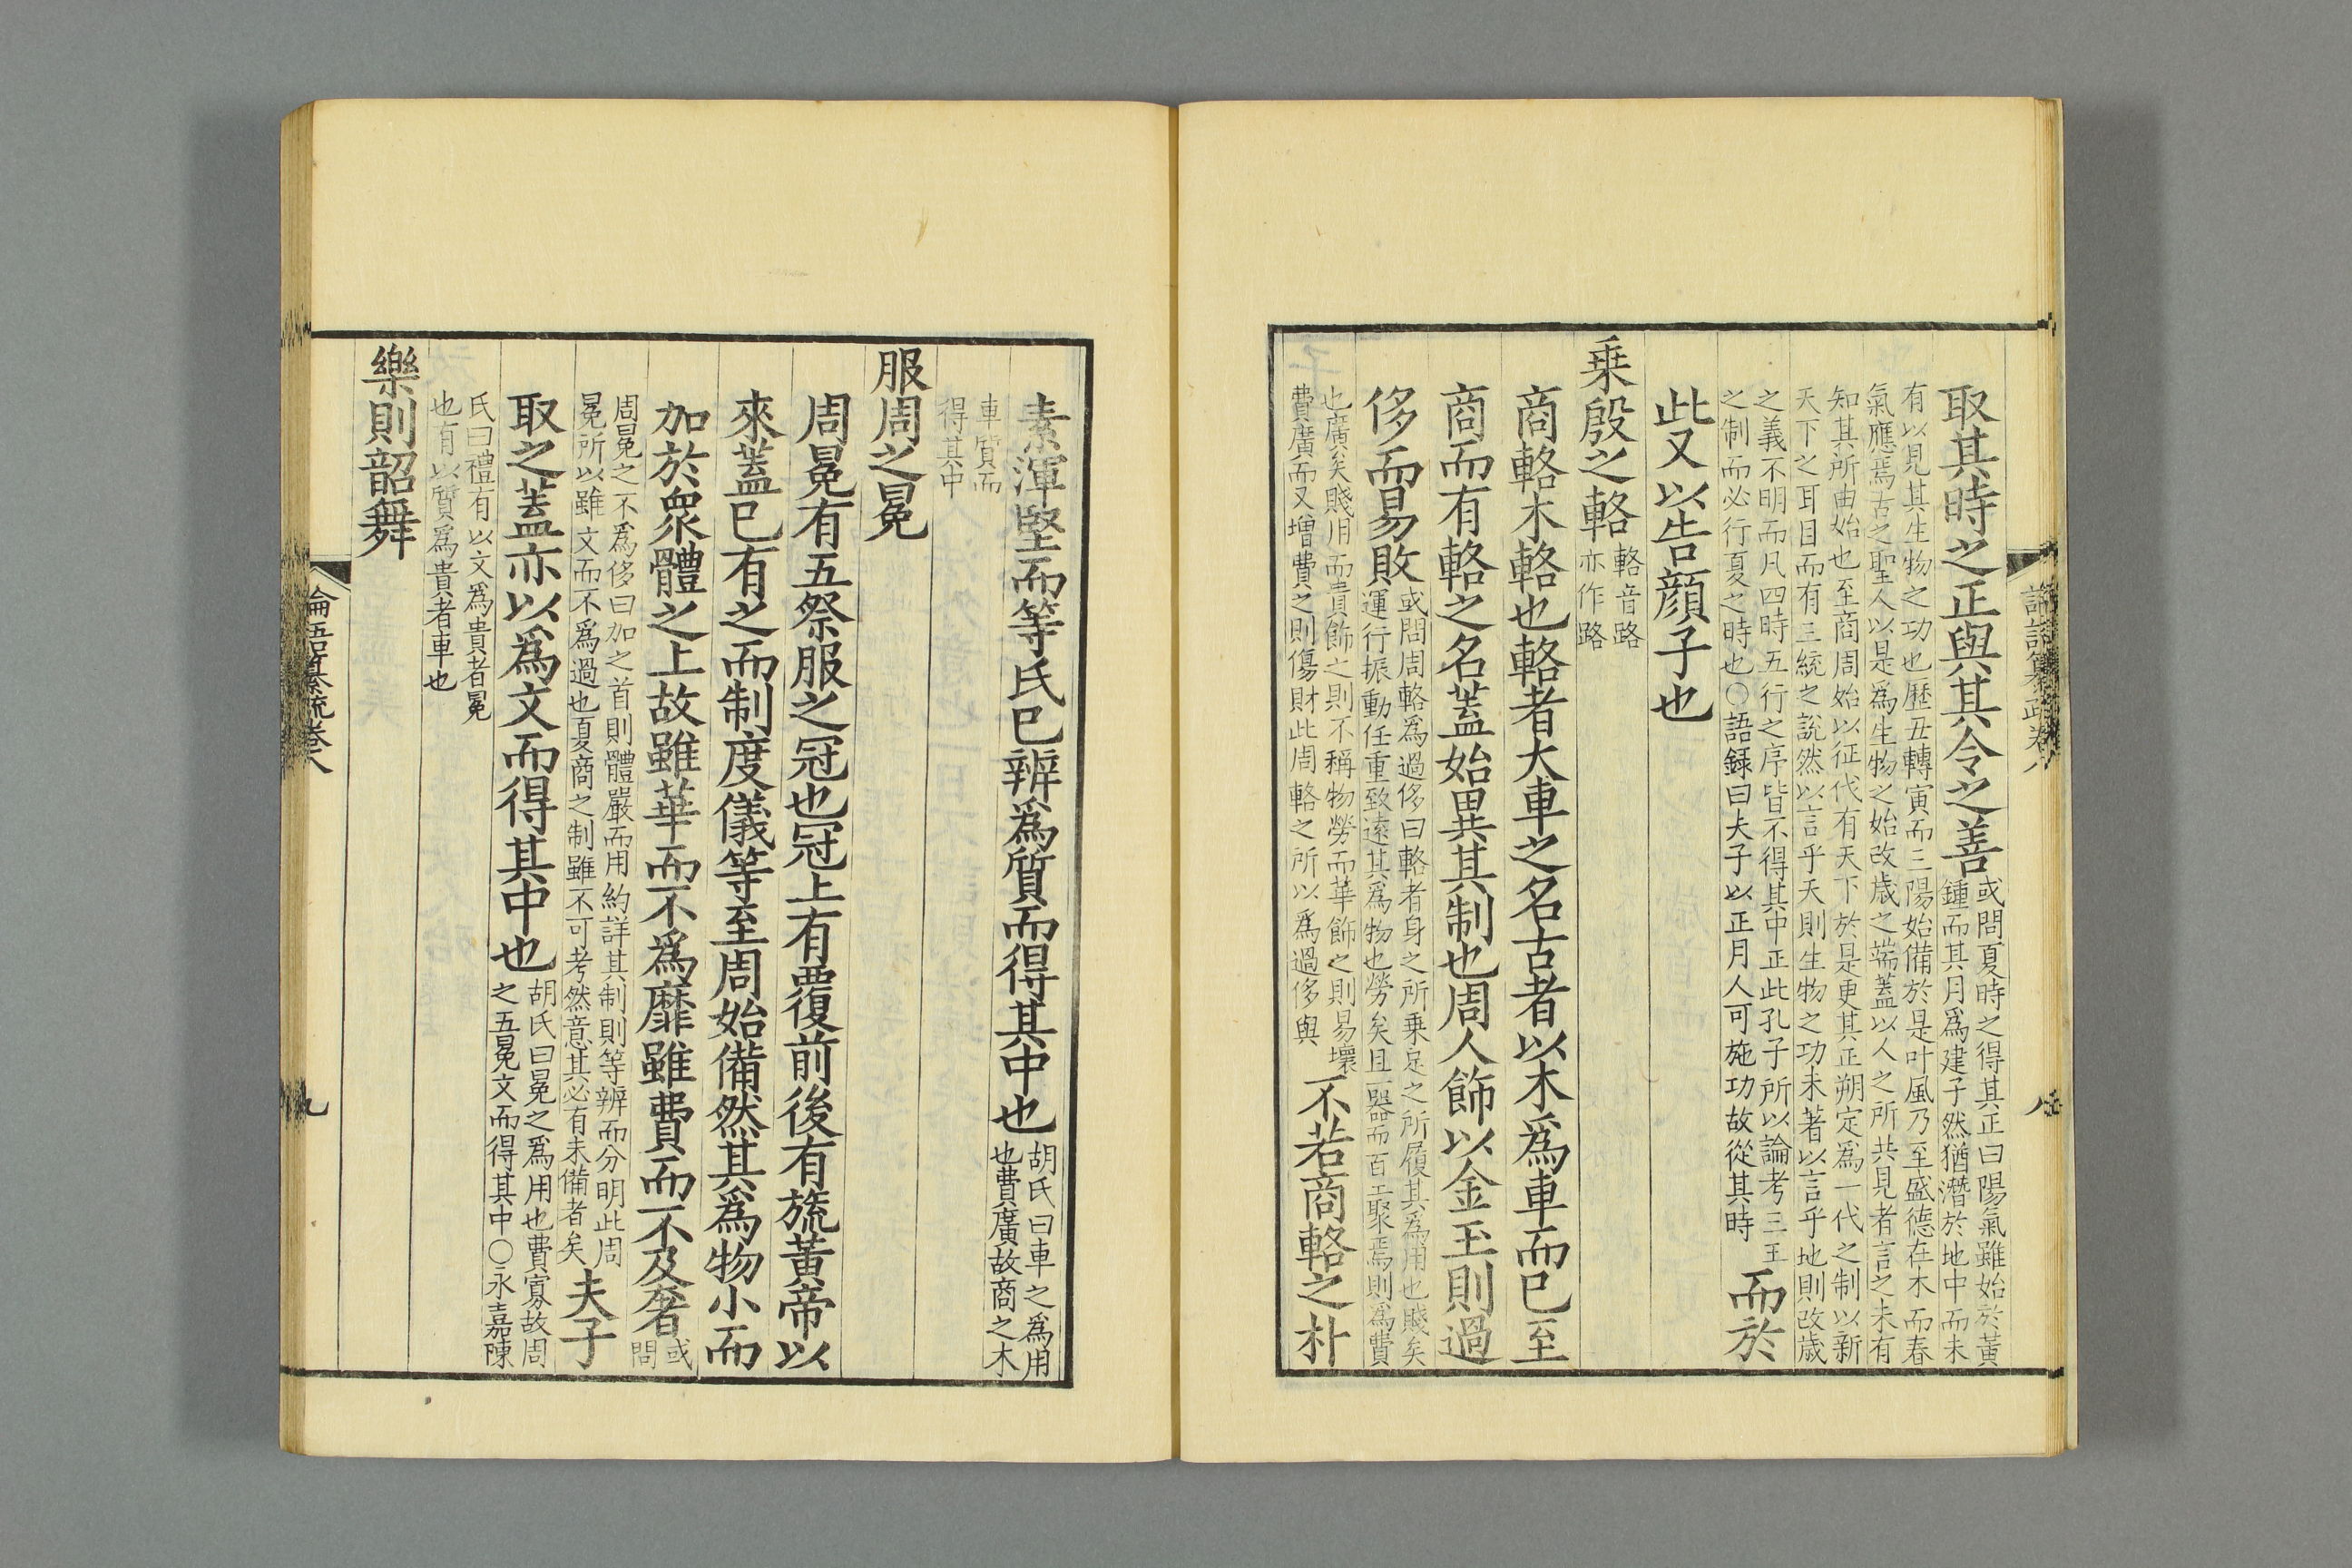 取其時之正與其令之善
或問夏時之得其正曰陽氣雖始於黃
鍾而其月爲建子然猶潛於地中而未
有以見其生物之功也歷丑轉寅而三陽始備於是叶風乃至盛德在木而春
氣應焉古之聖人以是爲生物之始改歲之端蓋以人之所共見者言之未有
知其所由始也至商周始以征伐有天下於是更其正朔定爲一代之制以新
天下之耳目而有三統之說然以言乎天則生物之功未著以言乎地則改歲
之義不明而凡四時五行之序皆不得其中正此孔子所以論考三王
之制而必行夏之時也〇語録曰夫子以正月人可施功故從其時
而於
此又以告顔子也
乗殷之輅
輅音路
亦作路
商輅木輅也輅者大車之名古者以木爲車而已至
商而有輅之名蓋始異其制也周人飾以金玉則過
侈而易敗
或問周輅爲過侈曰輅者身之所乗足之所履其爲用也賤矣
運行振動任重致遠其爲物也勞矣且一器而百工聚焉則爲費
也廣矣賤用而貴飾之則不稱物勞而華飾之則易壞
費廣而又增費之則傷財此周輅之所以爲過侈與
不若商輅之朴
論語纂疏卷八
八
素渾堅而等氏已辨爲質而得其中也
胡氏曰車之爲用
也費廣故商之木
車質而
得其中
服周之冕
周冕有五祭服之冠也冠上有覆前後有旒黃帝以
來蓋已有之而制度儀等至周始備然其爲物小而
加於衆體之上故雖華而不爲靡雖費而不及奢
或
問
周冕之不爲侈曰加之首則體嚴而用約詳其制則等辨而分明此周
冕所以雖文而不爲過也夏商之制雖不可考然意其必有未備者矣
夫子
取之蓋亦以爲文而得其中也
胡氏曰冕之爲用也費寡故周
之五冕文而得其中〇永嘉陳
氏曰禮有以文爲貴者冕
也有以質爲貴者車也
樂則韶舞
論語纂疏卷八
九